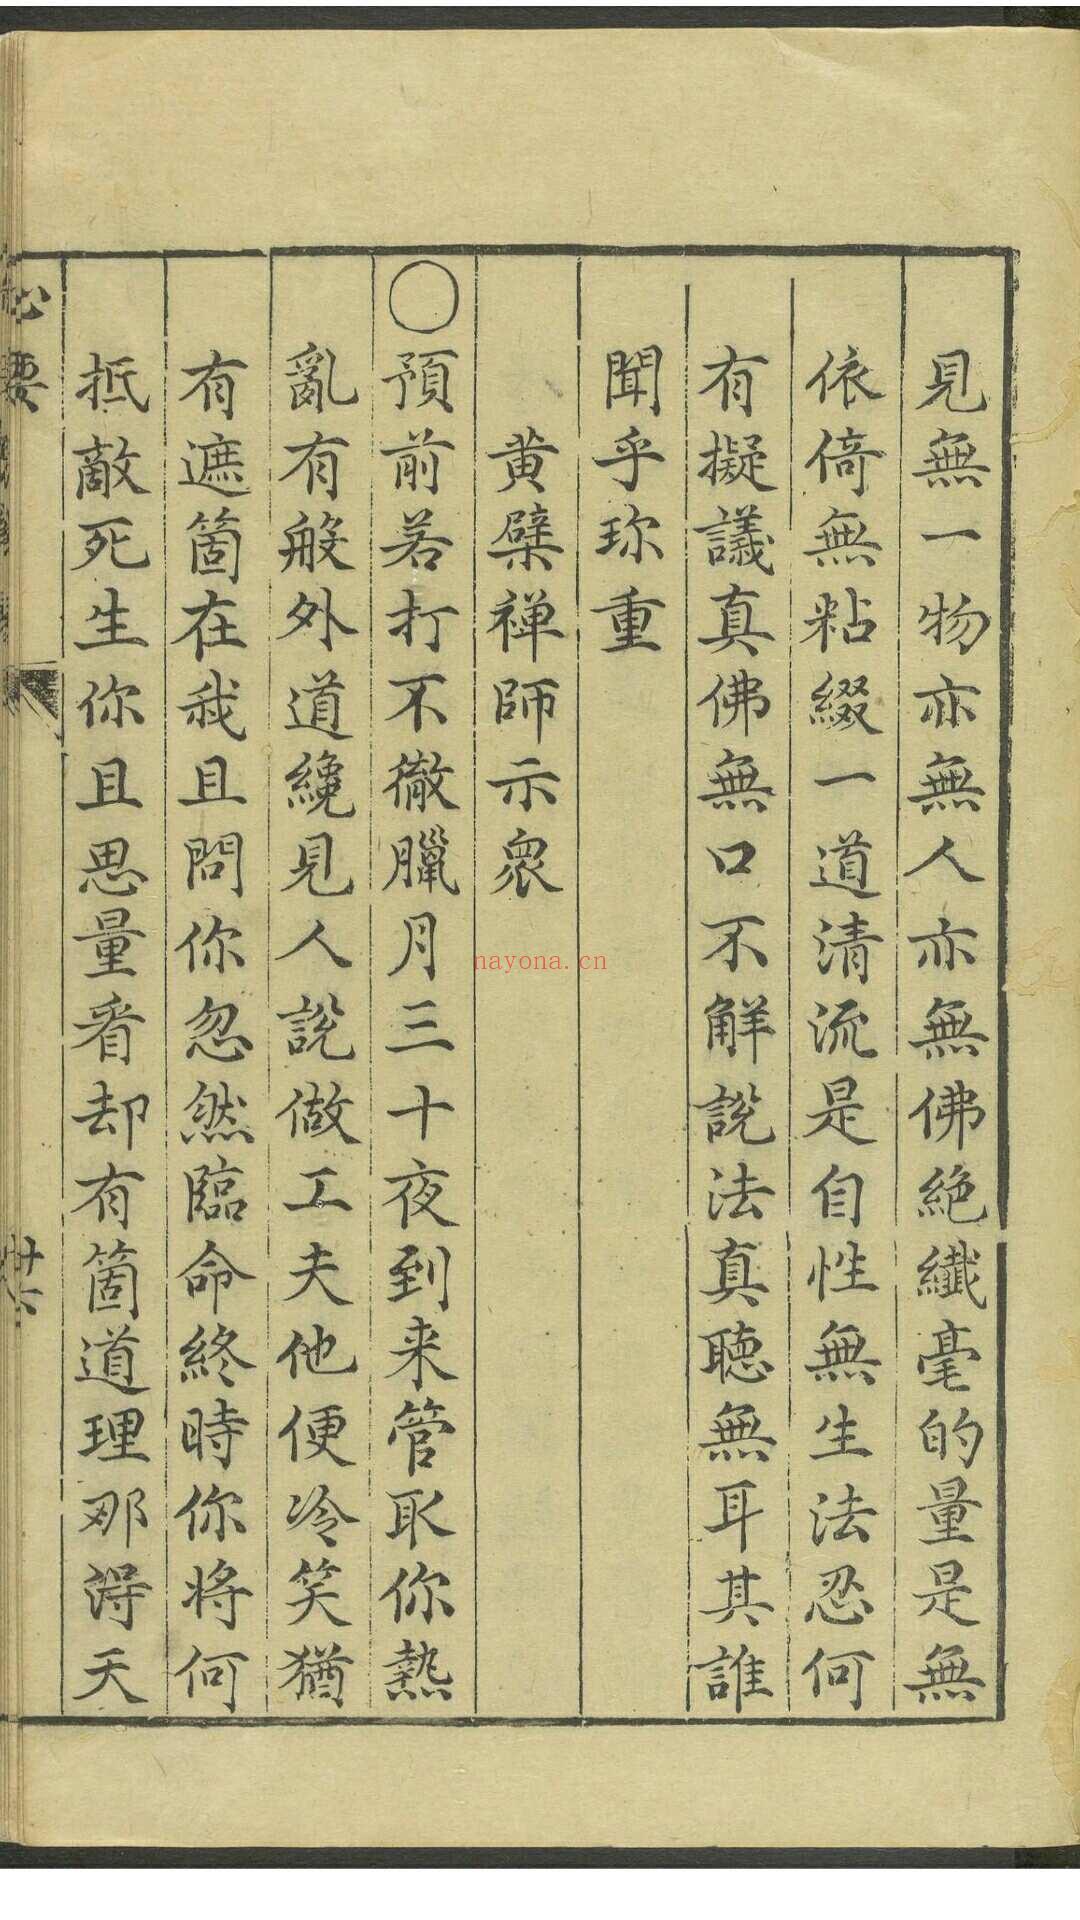 見無一物亦無人亦無佛絕纖毫的量是無
依倚無粘綴一道清流是自性無生法忍何
有擬議真佛無口不解說法真聽無耳其誰
聞乎珎重
黄檗禅師示衆
○預前若打不徹臘月三十夜到来管取你熱
亂有般外道纔見人說做工夫他便冷笑猶
有遮箇在我且問你忽然臨命終時你将何
抵敵死生你且思量看却有箇道理那淂天
心要
廿六
nayona.cn